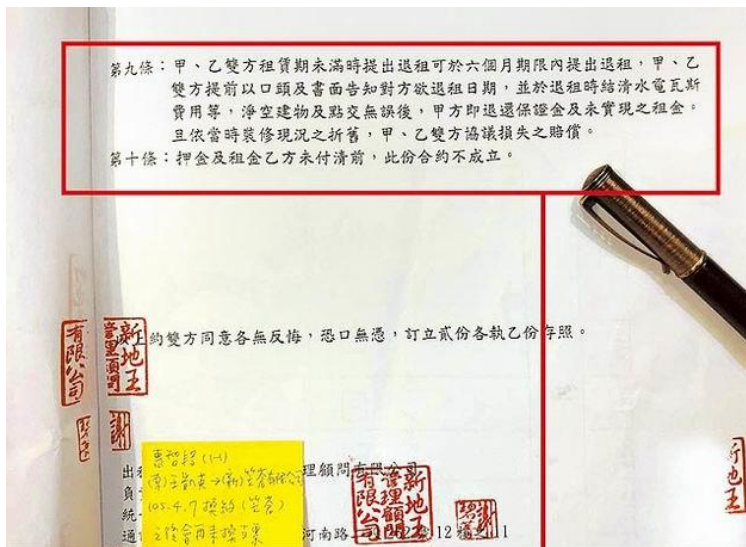 第九條：甲、乙雙方租賃期未滿時提出退租可於六個月期限內提出退租，甲、乙
雙方提前以口頭及書面告知對方欲退租日期，並於退租時結清水電瓦斯
費用等，淨空建物及點交無誤後，甲方即退還保證金及未實現之租金。
且依當時裝修現況之折舊，甲、乙雙方協議損失之賠償。
第十條：押金及租金乙方未付清前，此份合約不成立。
上約雙方同意各無反悔，恐口無憑，訂立貳份各執乙份存照。
新地王
管理顧問
有限公司
謝
出
理顧問有限公司
負
統
通
河南路
12
11
105.4.7 換約
新地王
管理顧問
有限公司
謝
新地王